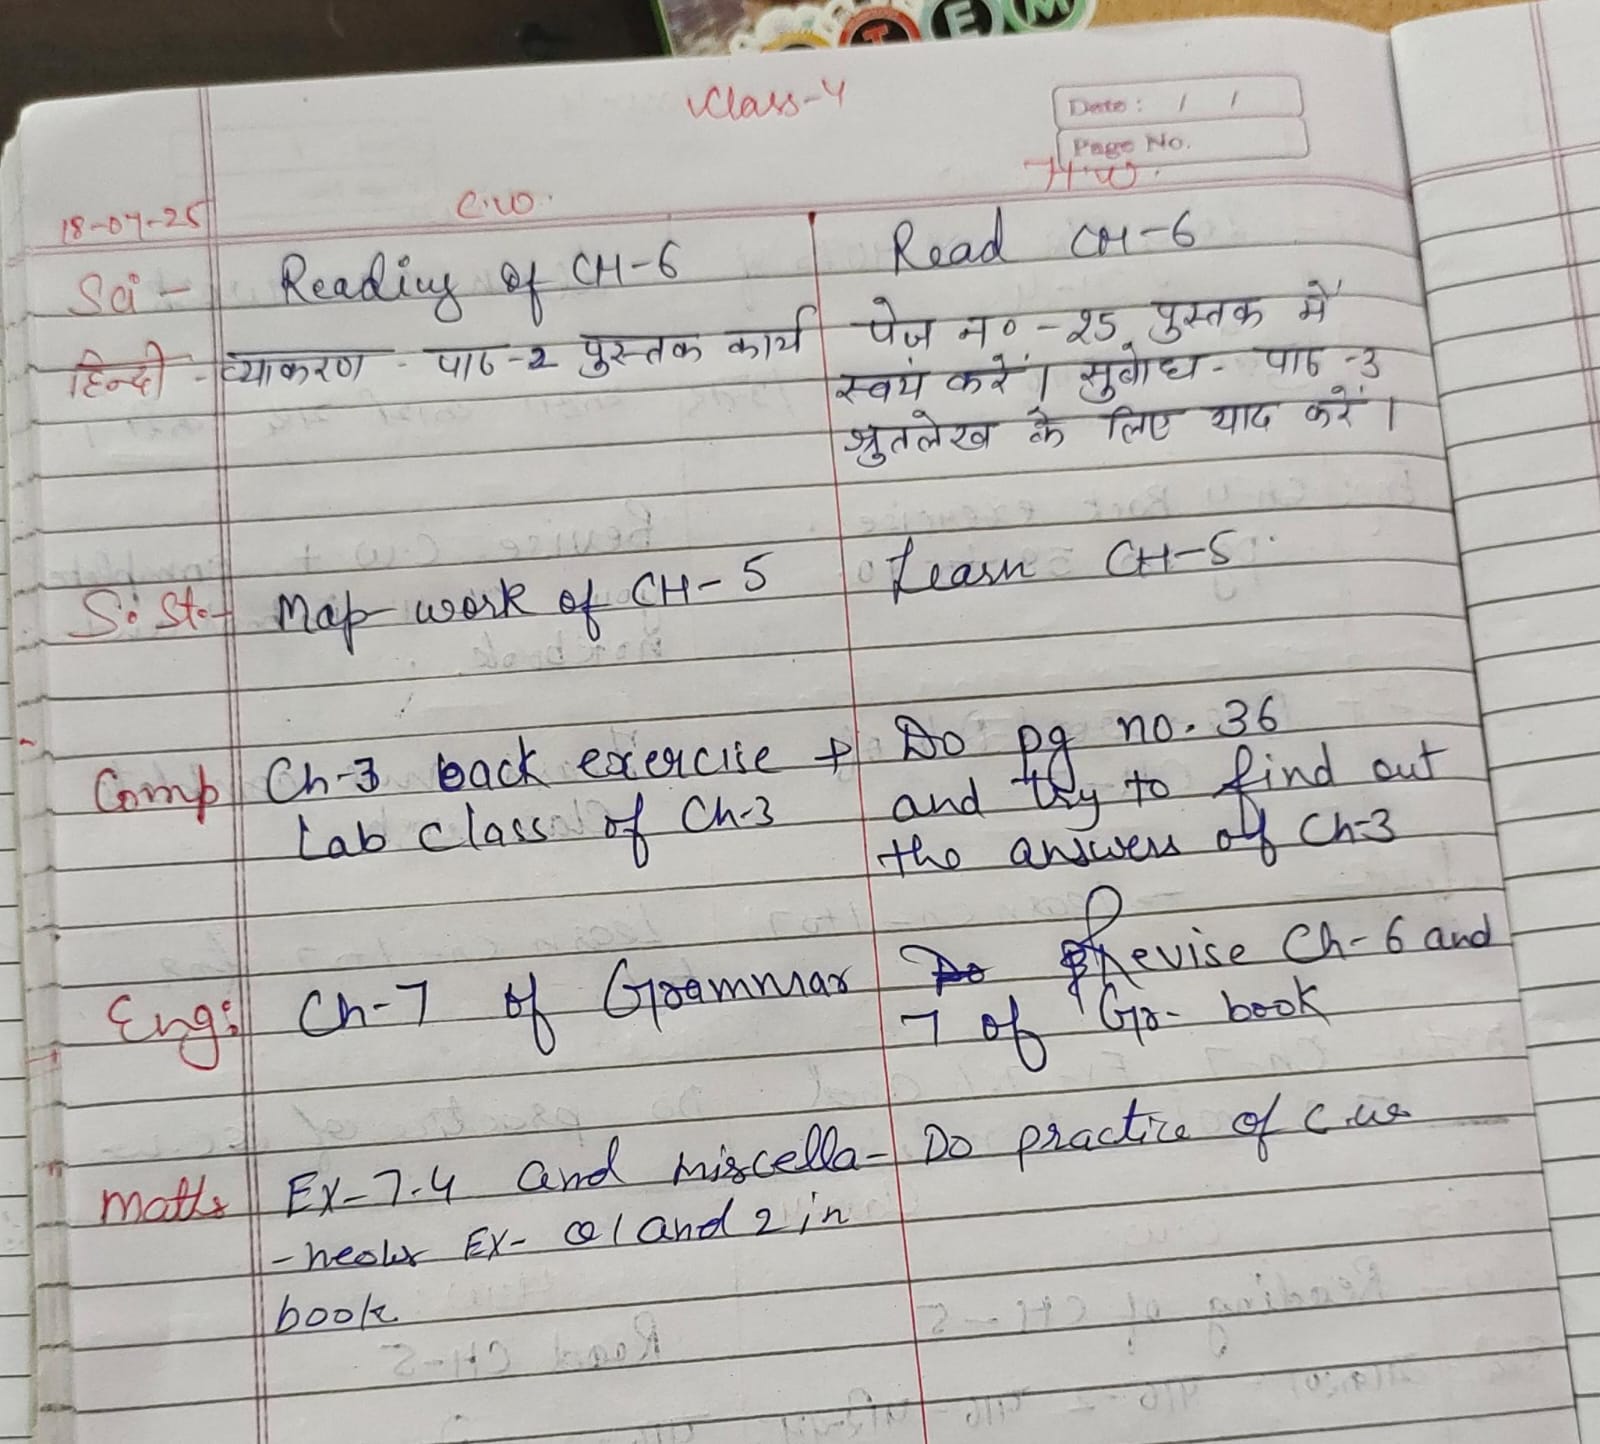 T E M
Class-4
Date: / /
Page No.
18-07-25
C.W.
H.W.
Sci - Reading of CH-6
Read CH-6
हिन्दी - व्याकरण - पाठ-2 पुस्तक कार्य
पेज न० - 25 पुस्तक में
स्वयं करें। सुबोध - पाठ -3
श्रुतलेख के लिए याद करें।
S. St. - Map work of CH-5
Learn CH-5.
Comp Ch-3 back exercise +
Lab class of Ch-3
Do pg no. 36
and try to find out
the answers of Ch-3
Eng: Ch-7 of Grammar
Revise Ch-6 and
7 of Gr- book
Maths Ex-7.4 and miscella-
-neous Ex- Q1 and 2 in
book
Do practice of C.W